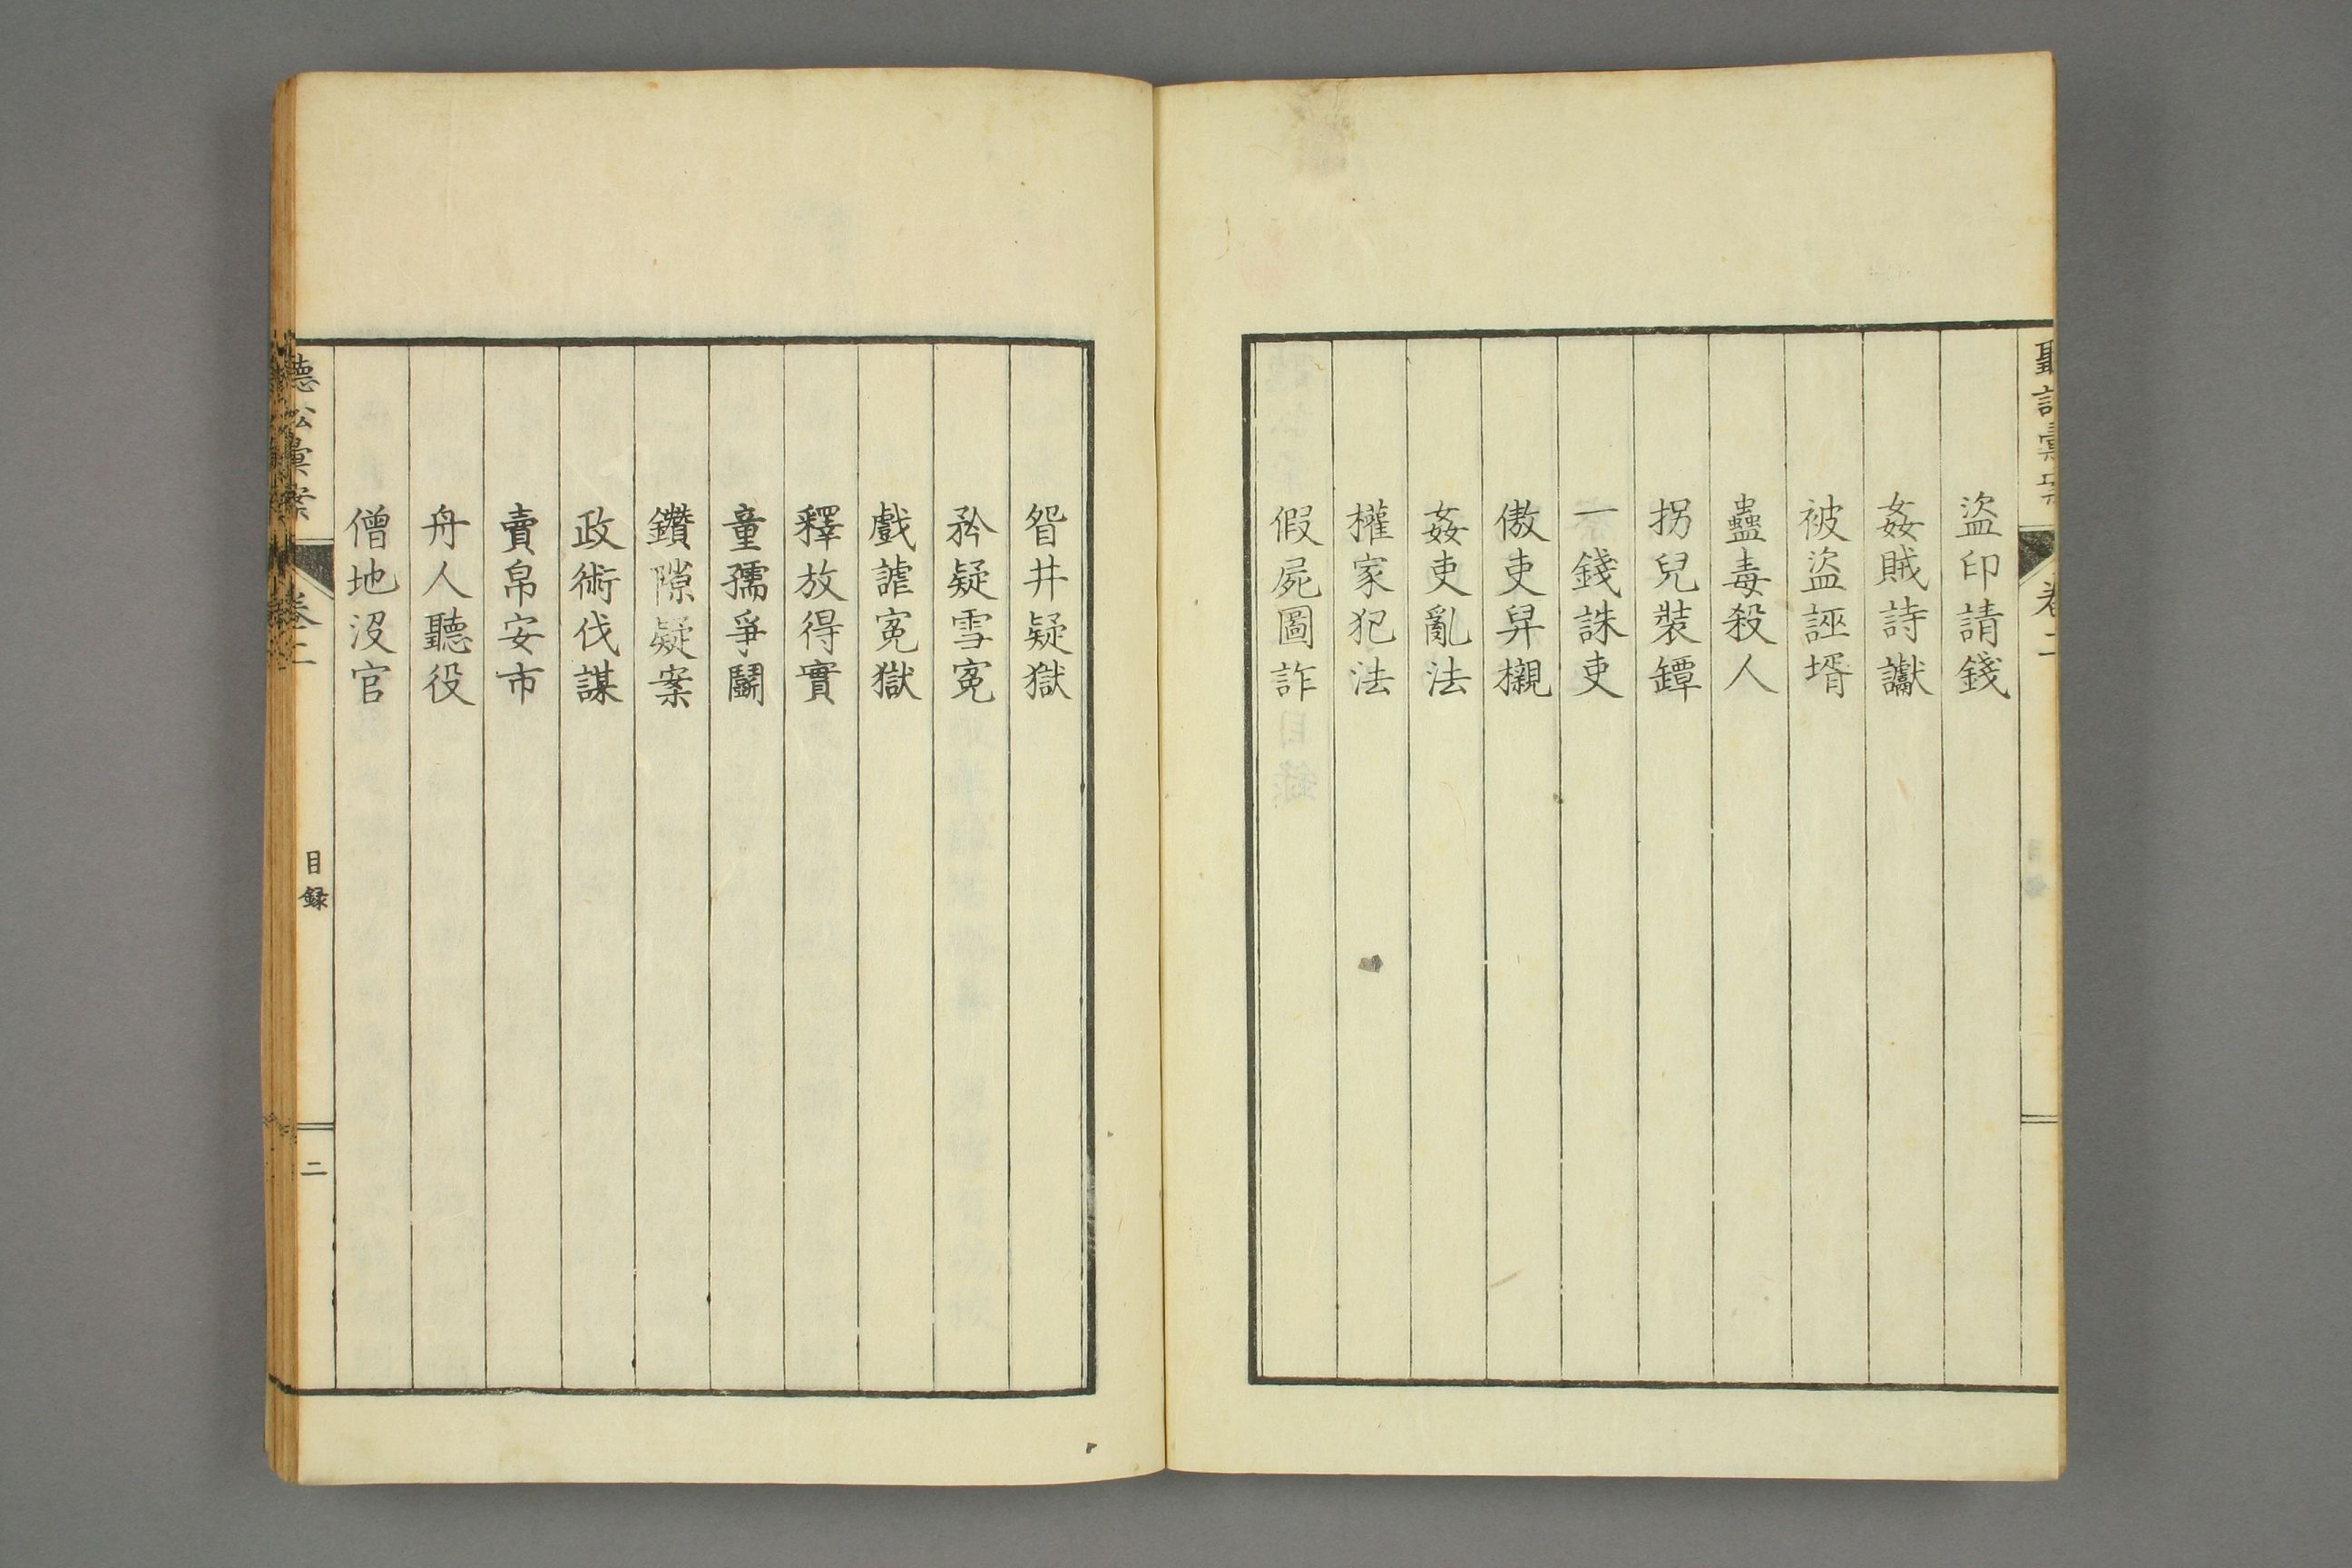 聽訟彙案 卷二
盜印請錢
姦賊詩讞
被盜誣壻
蠱毒殺人
拐兒裝罈
一錢誅吏
傲吏舁櫬
姦吏亂法
權家犯法
假屍圖詐
眢井疑獄
矜疑雪冤
戲謔冤獄
釋放得實
童孺爭鬭
鑽隙疑案
政術伐謀
賣帛安市
舟人聽役
僧地沒官
聽訟彙案 卷二 目録 二